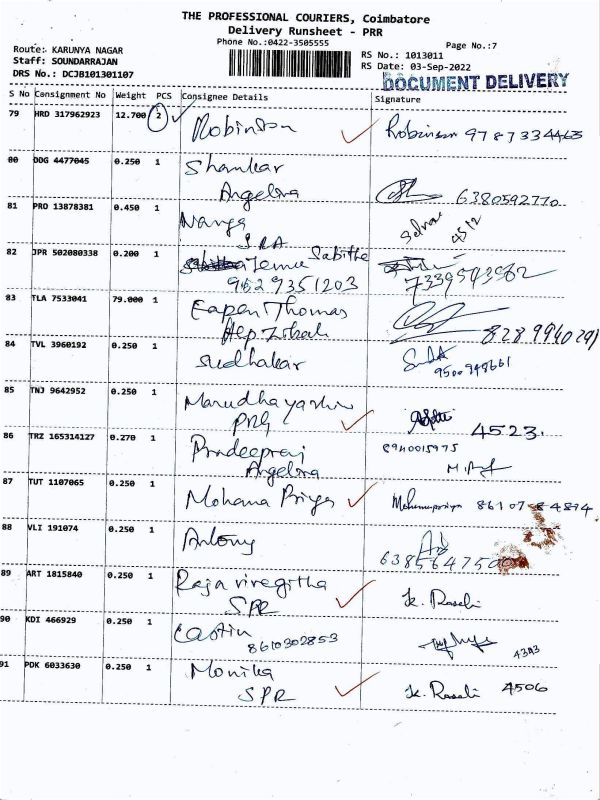 THE PROFESSIONAL COURIERS, Coimbatore
Delivery Runsheet - PRR
Phone No.:0422-3505555
Page No.:7
Route: KARUNYA NAGAR
Staff: SOUNDARRAJAN
DRS No.: DCJB101301107
RS No.: 1013011
RS Date: 03-Sep-2022
DOCUMENT DELIVERY
S No Consignment No Weight PCS Consignee Details Signature
79 HRD 317962923 12.700 2 Robinson Robinson 9787334463
80 DDG 4477045 0.250 1 Shankar
Angelina 6380592770
81 PRO 13878381 0.450 1 Nanga Selva 4512
SRA
82 JPR 502080338 0.200 1 Jemu Sabitha
9629351203 7339543982
83 TLA 7533041 79.000 1 Eapen Thomas
Hepzibah 8289940291
84 TVL 3960192 0.250 1 Sudhakar
9500948661
85 TNJ 9642952 0.250 1
PRG 4523
86 TRZ 165314127 0.270 1 Pradeepraj 8940015975
Angelina
87 TUT 1107065 0.250 1 Mohana Priya Mohanapriya 86107 84894
88 VLI 191074 0.250 1 Antony
6385647500
89 ART 1815840 0.250 1 Raja viregitha K. Rasali
SPR
90 KDI 466929 0.250 1 Castin
8610302853 4393
91 PDK 6033630 0.250 1 Monika K. Rasali 4506
SPR